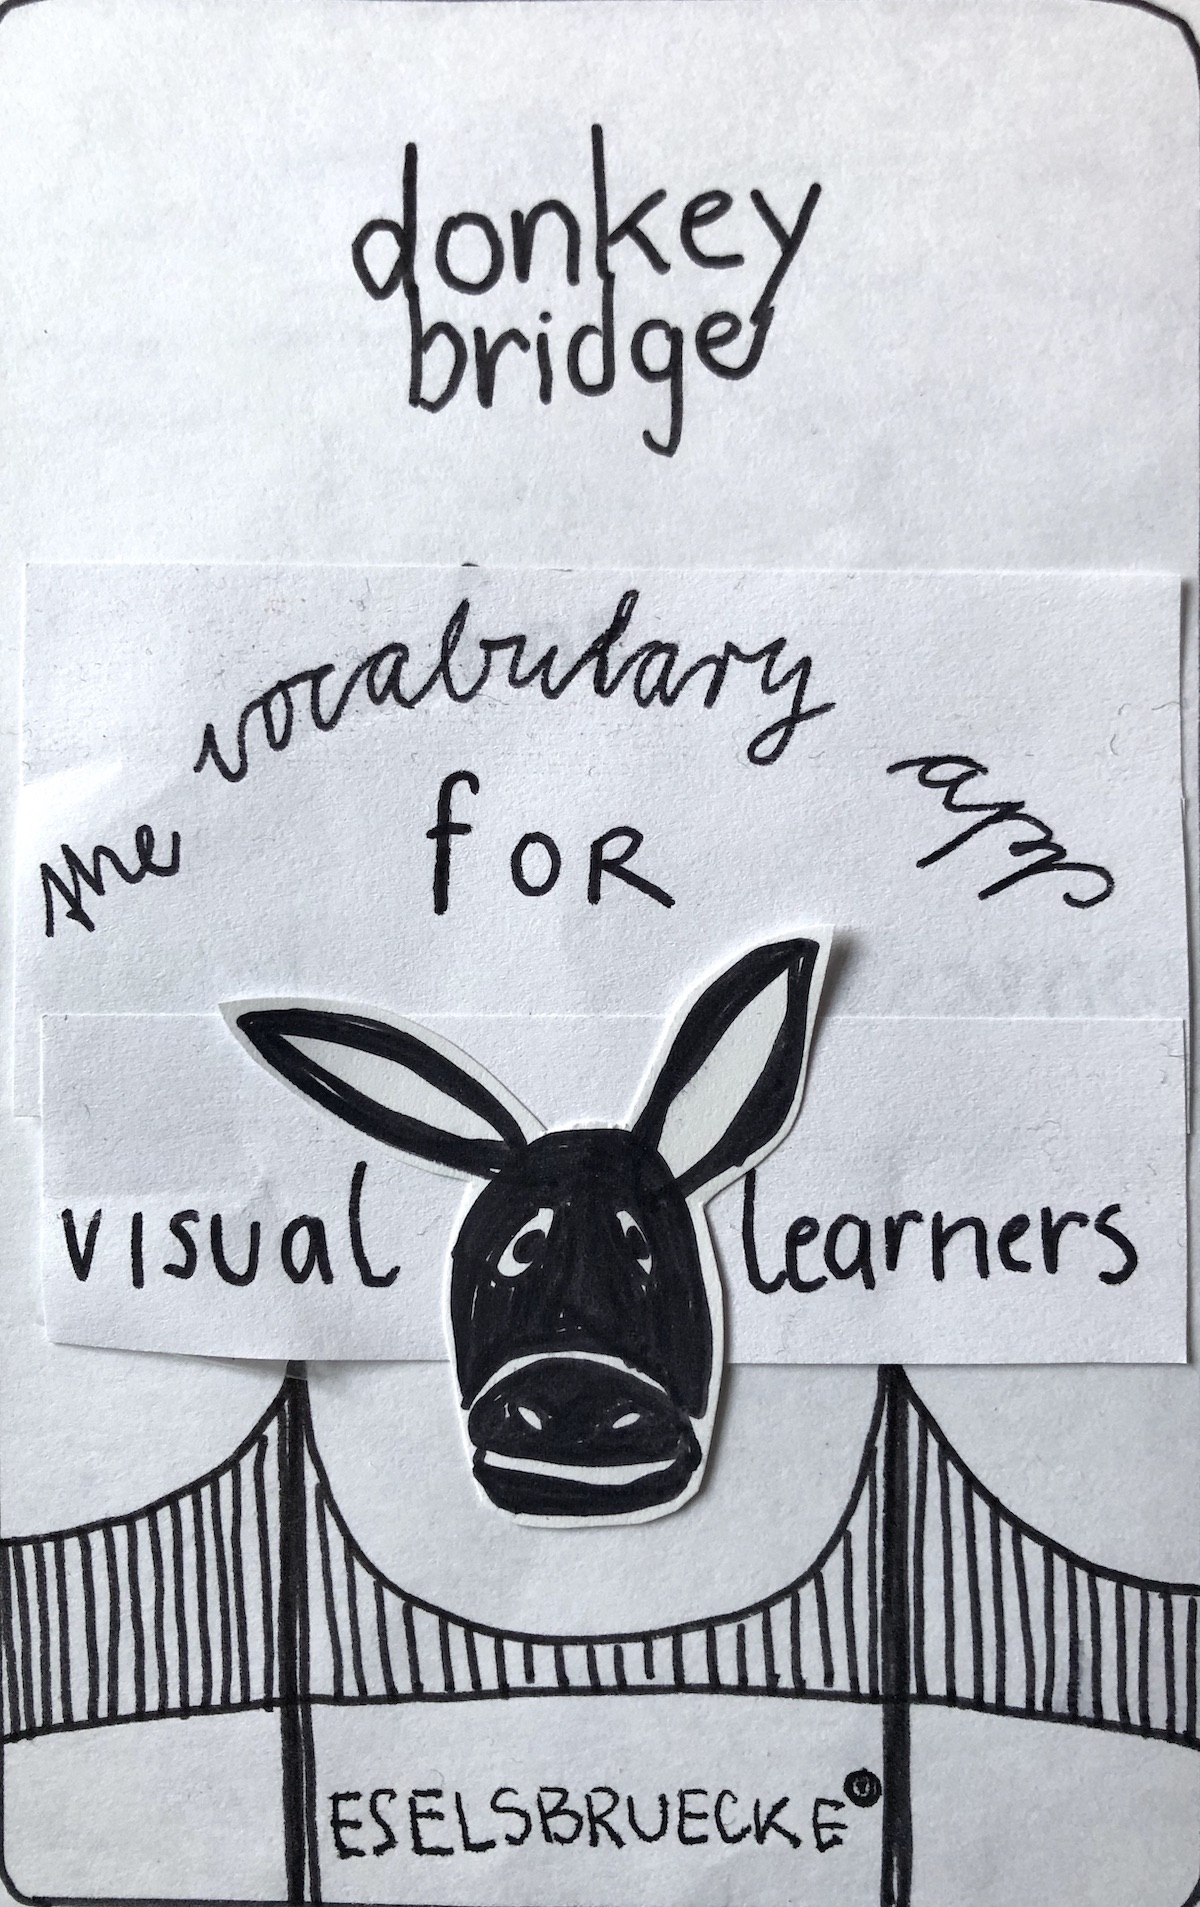 donkey
bridge
the vocabulary app
for
visual learners
ESELSBRUECKE